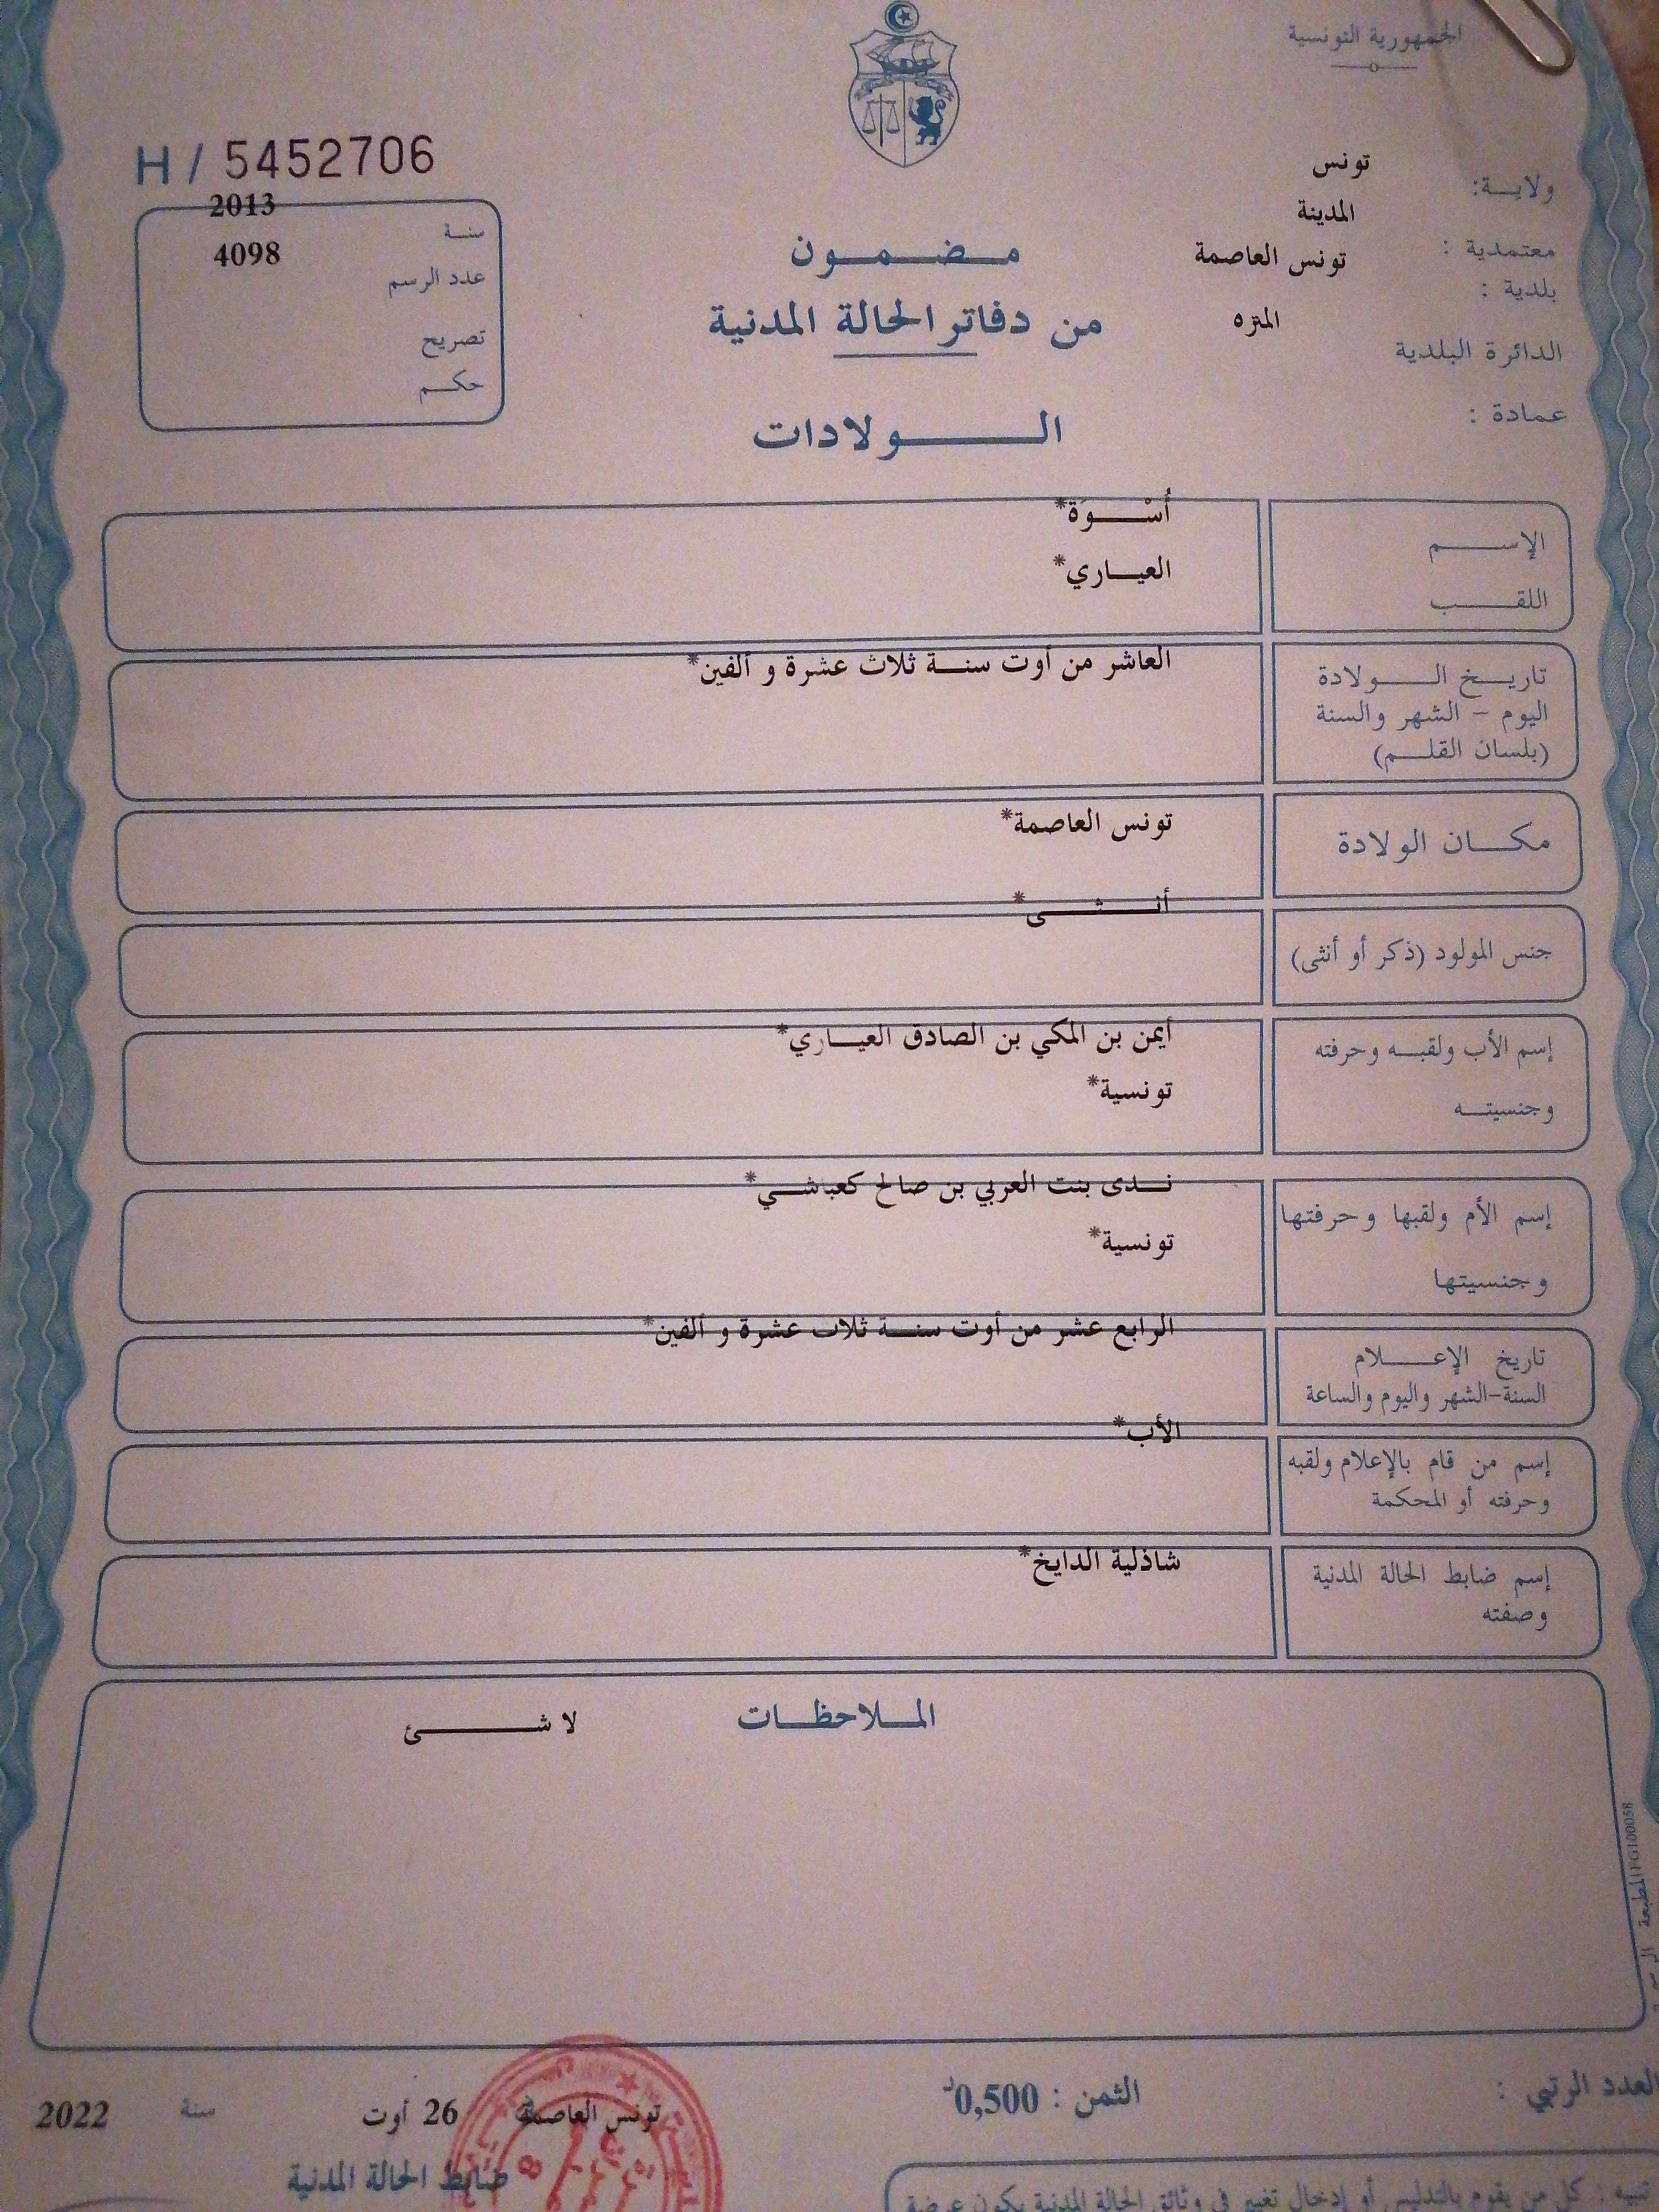 الجمهورية التونسية
H / 5452706
ولايـــة: تونس
المدينة
معتمدية :
بلدية : تونس العاصمة
الدائرة البلدية المنزه
عمادة :
2013
سنـة
4098
عدد الرسم
تصريح
حكـم
مـضـمـون
من دفاتر الحالة المدنية
الـــولادات
الإســـم أُسْـــوَة*
اللقـــب العيـــاري*
تاريـخ الـــولادة العاشر من أوت سنـــة ثلاث عشرة و ألفين*
اليوم - الشهر والسنة
(بلسان القلـم)
مكـــان الولادة تونس العاصمة*
جنس المولود (ذكر أو أنثى) أنـــثـــى*
إسم الأب ولقبـه وحرفته أيمن بن المكي بن الصادق العيـــاري*
وجنسيتـه تونسية*
إسم الأم ولقبها وحرفتها نـــدى بنت العربي بن صالح كعباشـــي*
وجنسيتها تونسية*
تاريخ الإعـــلام الرابع عشر من أوت سنـــة ثلاث عشرة و ألفين*
السنة-الشهر واليوم والساعة
إسم من قام بالإعلام ولقبه الأب*
وحرفته أو المحكمة
إسم ضابط الحالة المدنية شاذلية الدايخ*
وصفته
المـلاحظـات
لا شـــئ
المطبعة
FG100058
العدد الرتبي :
الثمن : 0,500د
تونس العاصمة 26 أوت سنة 2022
ضابط الحالة المدنية
تنبيه : كل من يقوم بالتدليس أو إدخال تغيير في وثائق الحالة المدنية يكون عرضة